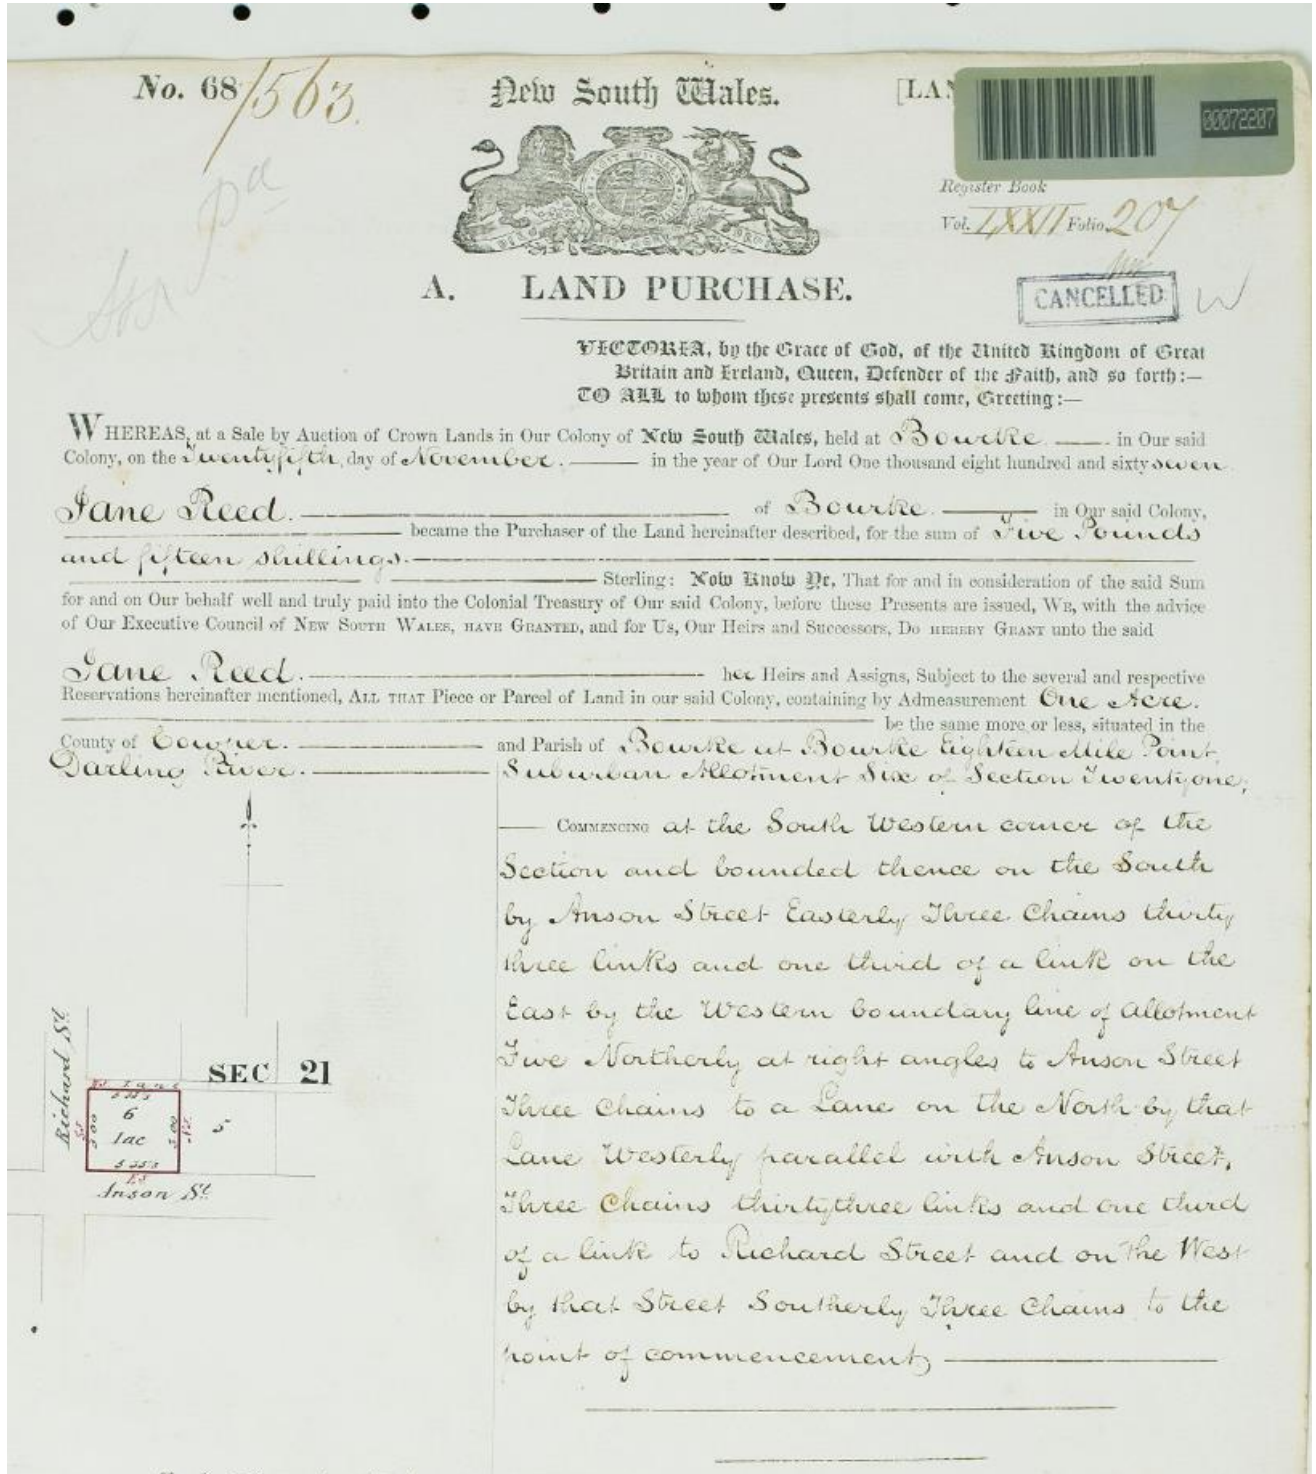 No. 68/563.
New South Wales.
[LAN
00072207
Register Book
Vol. LXXII Folio 207
A. LAND PURCHASE.
CANCELLED
W
VICTORIA, by the Grace of God, of the United Kingdom of Great
Britain and Ireland, Queen, Defender of the Faith, and so forth:—
TO ALL to whom these presents shall come, Greeting:—
WHEREAS, at a Sale by Auction of Crown Lands in Our Colony of New South Wales, held at Bourke in Our said
Colony, on the Twentyfifth day of November. in the year of Our Lord One thousand eight hundred and sixty seven
Jane Reed. of Bourke. in Our said Colony,
became the Purchaser of the Land hereinafter described, for the sum of Five Pounds
and fifteen shillings.
Sterling: Now Know Ye, That for and in consideration of the said Sum
for and on Our behalf well and truly paid into the Colonial Treasury of Our said Colony, before these Presents are issued, WE, with the advice
of Our Executive Council of NEW SOUTH WALES, HAVE GRANTED, and for Us, Our Heirs and Successors, DO HEREBY GRANT unto the said
Jane Reed. her Heirs and Assigns, Subject to the several and respective
Reservations hereinafter mentioned, ALL THAT Piece or Parcel of Land in our said Colony, containing by Admeasurement One Acre.
be the same more or less, situated in the
County of Cowper. and Parish of Bourke at Bourke Eighteen Mile Point,
Darling River. Suburban Allotment Six of Section Twentyone,
COMMENCING at the South Western corner of the
Section and bounded thence on the South
by Anson Street Easterly Three Chains thirty
three links and one third of a link on the
East by the Western boundary line of Allotment
Five Northerly at right angles to Anson Street
Three Chains to a Lane on the North by that
Lane Westerly parallel with Anson Street,
Three Chains thirtythree links and one third
of a link to Richard Street and on the West
by that Street Southerly Three Chains to the
point of commencement,
Richard St
SEC 21
Lane
6
1ac
5
Anson St